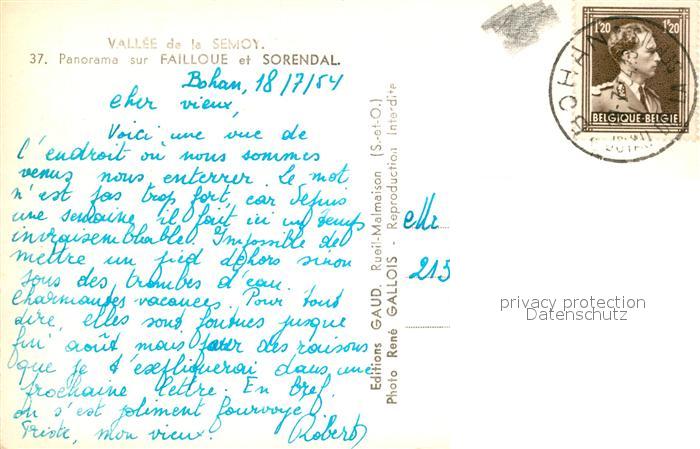 VALLÉE de la SEMOY.
37. Panorama sur FAILLOUE et SORENDAL.
Bohan, 18/7/54
Cher vieux,
Voici une vue de
l'endroit où nous sommes
venus nous enterrer. Le mot
n'est pas trop fort, car depuis
une semaine il fait ici un temps
invraisemblable. Impossible de
mettre un pied dehors sinon
sous des trombes d'eau.
Charmantes vacances. Pour tout
dire, elles sont foutues jusque
fin août mais pour des raisons
que je t'expliquerai dans une
prochaine lettre. En bref,
on s'est joliment fourvoyé.
Triste, mon vieux. Robert
Editions GAUD, Rueil-Malmaison (S.-et-O.)
Photo René GALLOIS - Reproduction Interdite
1F20 1F20
BELGIQUE-BELGIE
BOHAN
Mr
215
privacy protection
Datenschutz